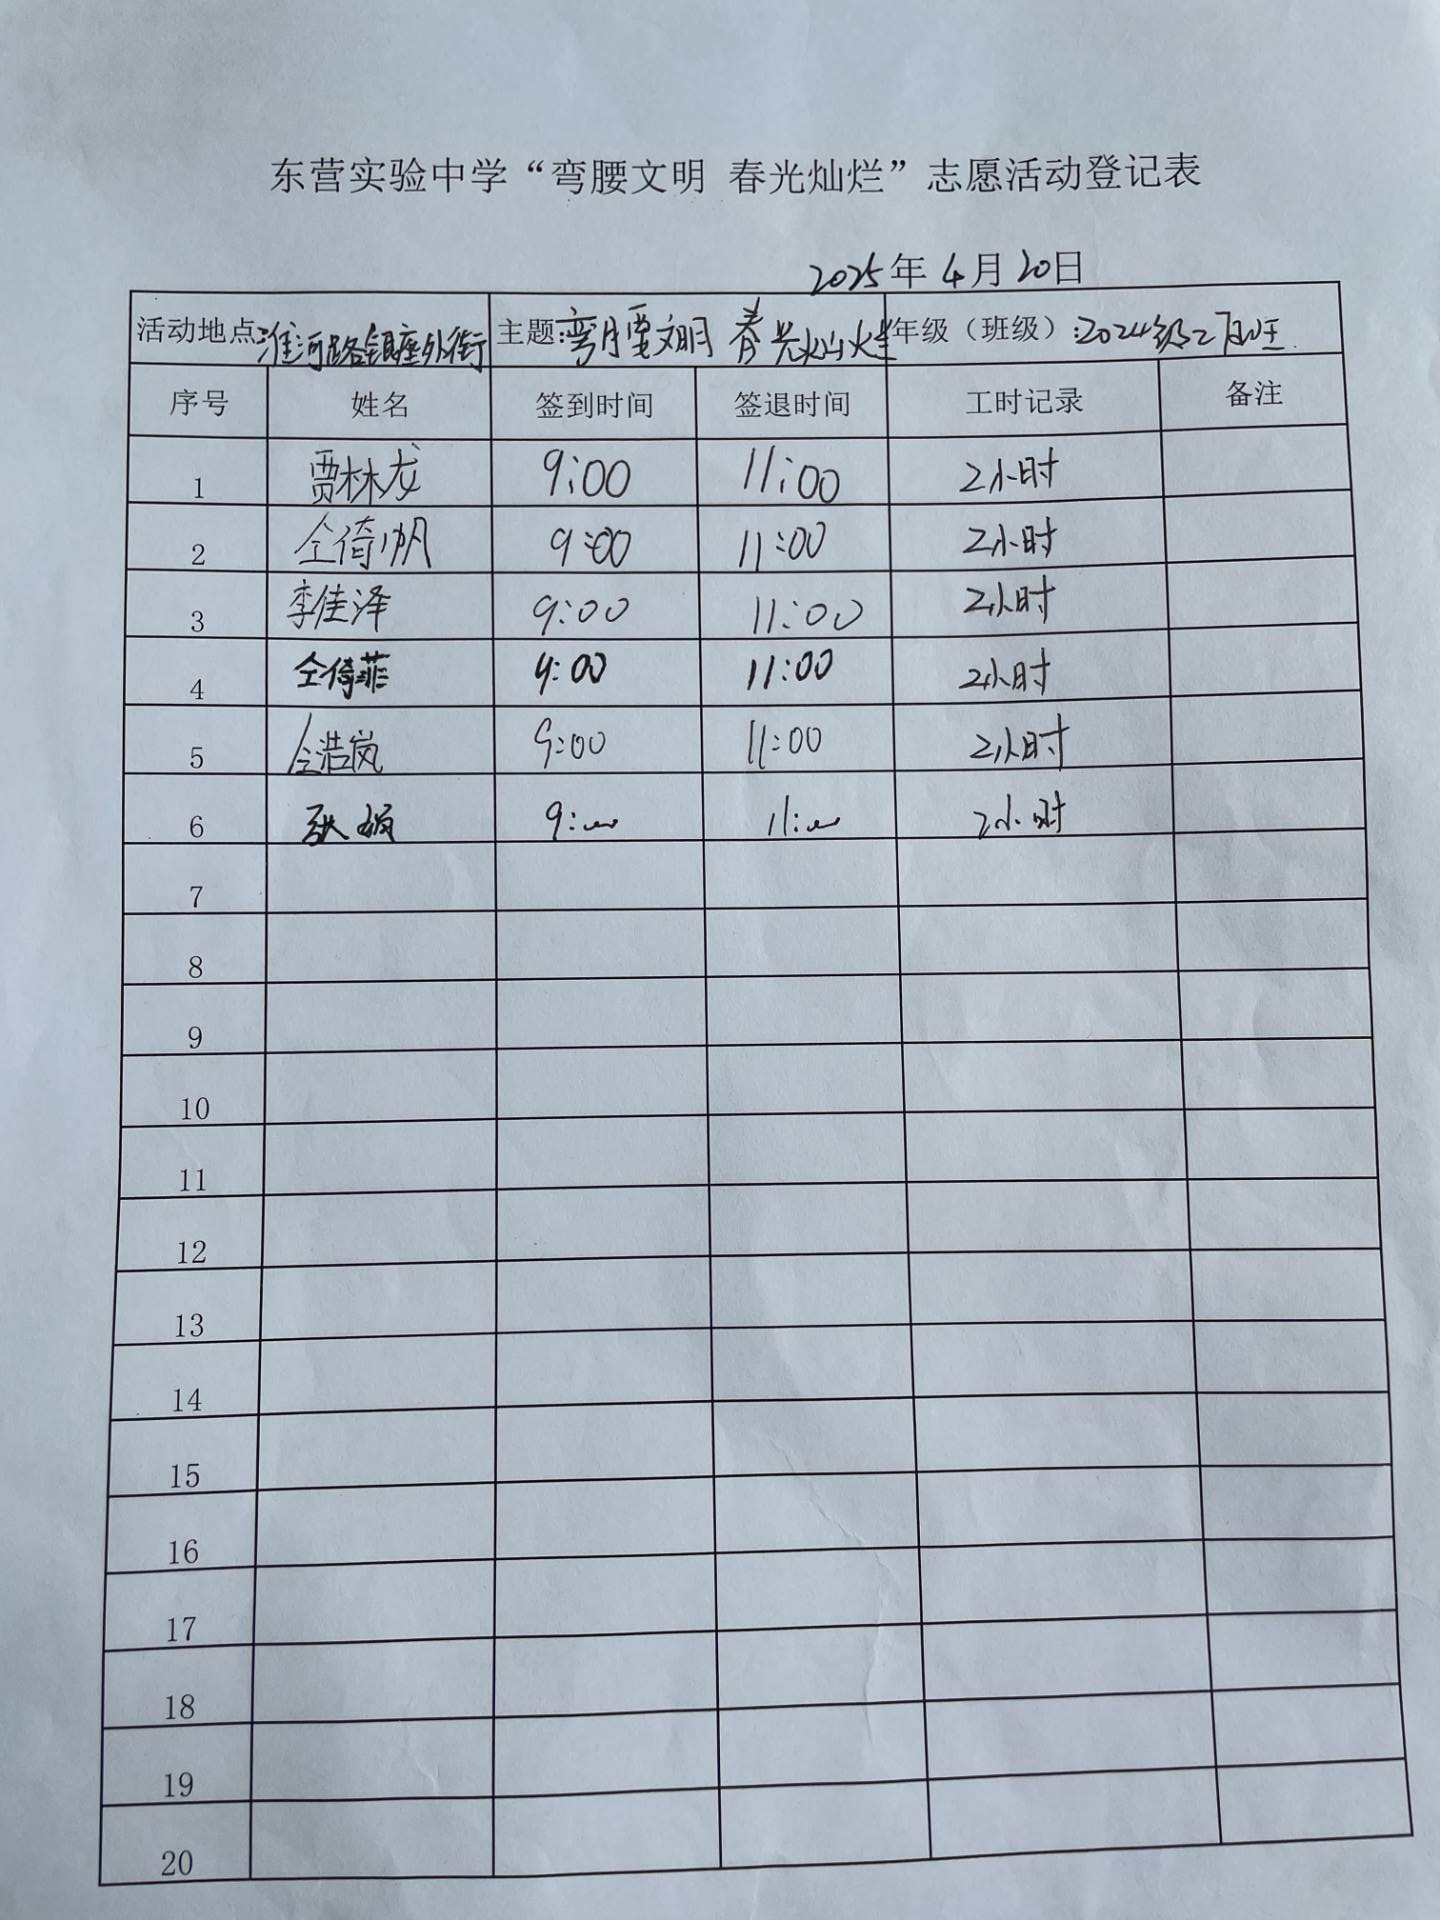 东营实验中学“弯腰文明 春光灿烂”志愿活动登记表
2025年4月20日
活动地点:淮河路银座外街 主题:弯腰文明 春光灿烂 年级（班级）:2024级27班
序号 姓名 签到时间 签退时间 工时记录 备注
1 贾林龙 9:00 11:00 2小时
2 仝倚帆 9:00 11:00 2小时
3 李佳泽 9:00 11:00 2小时
4 仝倚菲 9:00 11:00 2小时
5 仝浩岚 9:00 11:00 2小时
6 9:00 11:00 2小时
7
8
9
10
11
12
13
14
15
16
17
18
19
20